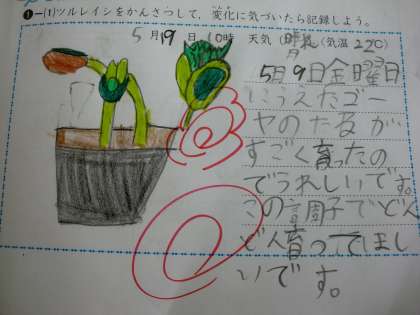 ❶−(1)ツルレイシをかんさつして、変化に気づいたら記録しよう。
5月19日 10時 天気(晴れ)(気温22℃)
5月9日金曜日
にうえたゴー
ヤのたるが
すごく育ったの
でうれしいです。
この調子でどん
どん育ってほし
いです。